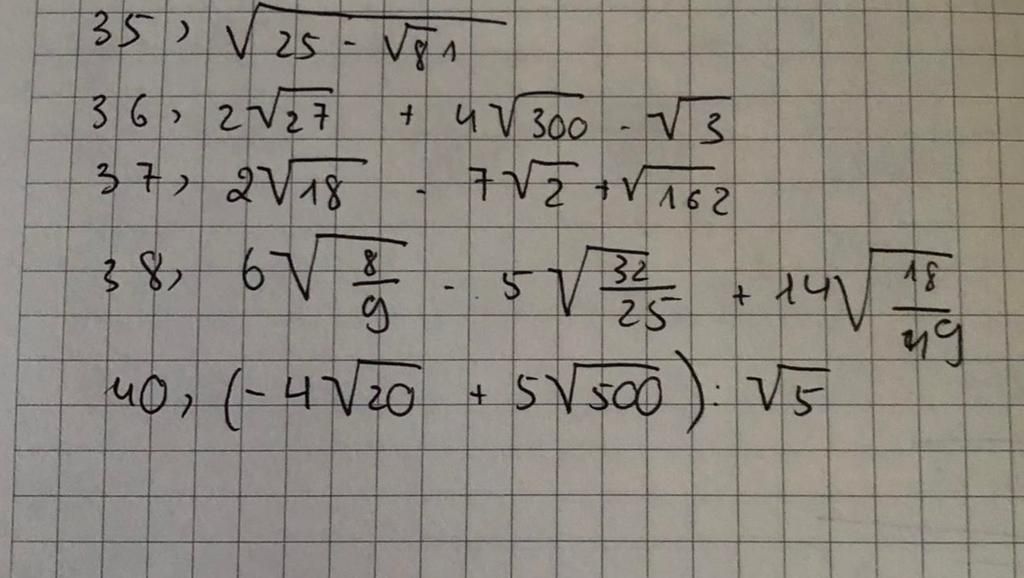 35, √(25 - √81)
36, 2√27 + 4√300 - √3
37, 2√18 - 7√2 + √162
38, 6√(8/9) - 5√(32/25) + 14√(18/49)
40, (-4√20 + 5√500) : √5